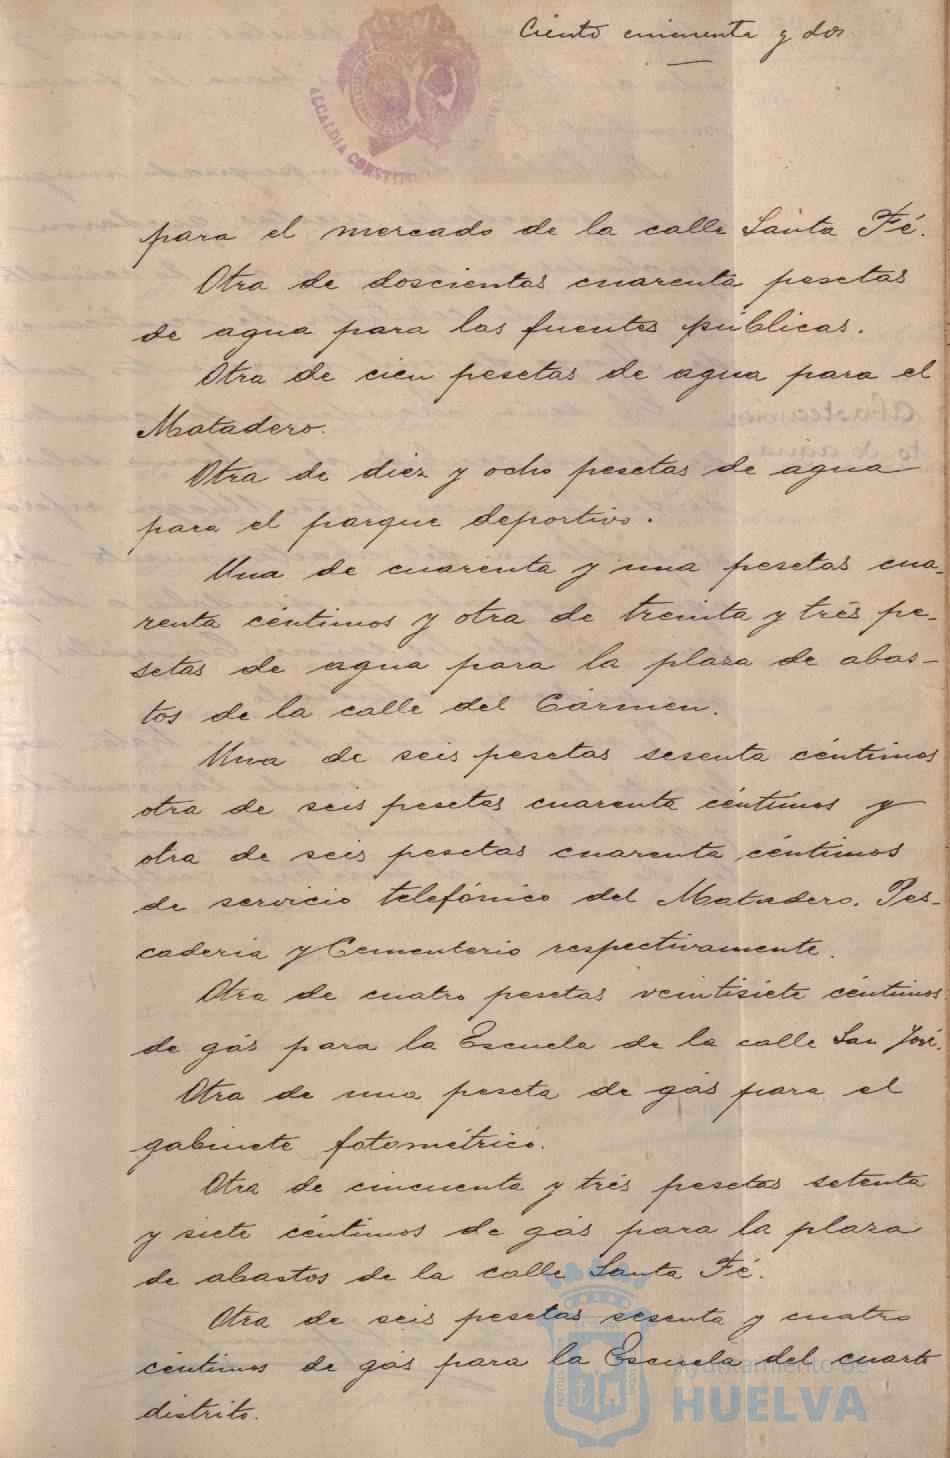 Ciento cincuenta y dos
ALCALDIA CONSTI
para el mercado de la calle Santa Fé.
Otra de doscientas cuarenta pesetas
de agua para las fuentes públicas.
Otra de cien pesetas de agua para el
Matadero.
Otra de diez y ocho pesetas de agua
para el parque deportivo.
Una de cuarenta y una pesetas cua-
renta céntimos y otra de treinta y trés pe-
setas de agua para la plaza de abas-
tos de la calle del Cármen.
Una de seis pesetas sesenta céntimos
otra de seis pesetas cuarenta céntimos y
otra de seis pesetas cuarenta céntimos
de servicio telefónico del Matadero, Pes-
caderia y Cementerio respectivamente.
Otra de cuatro pesetas veintisiete céntimos
de gás para la Escuela de la calle San José.
Otra de una peseta de gás para el
gabinete fotométrico.
Otra de cincuenta y trés pesetas setenta
y siete céntimos de gás para la plaza
de abastos de la calle Santa Fé.
Otra de seis pesetas sesenta y cuatro
céntimos de gás para la Escuela del cuarto
distrito.
Ayuntamiento de
HUELVA